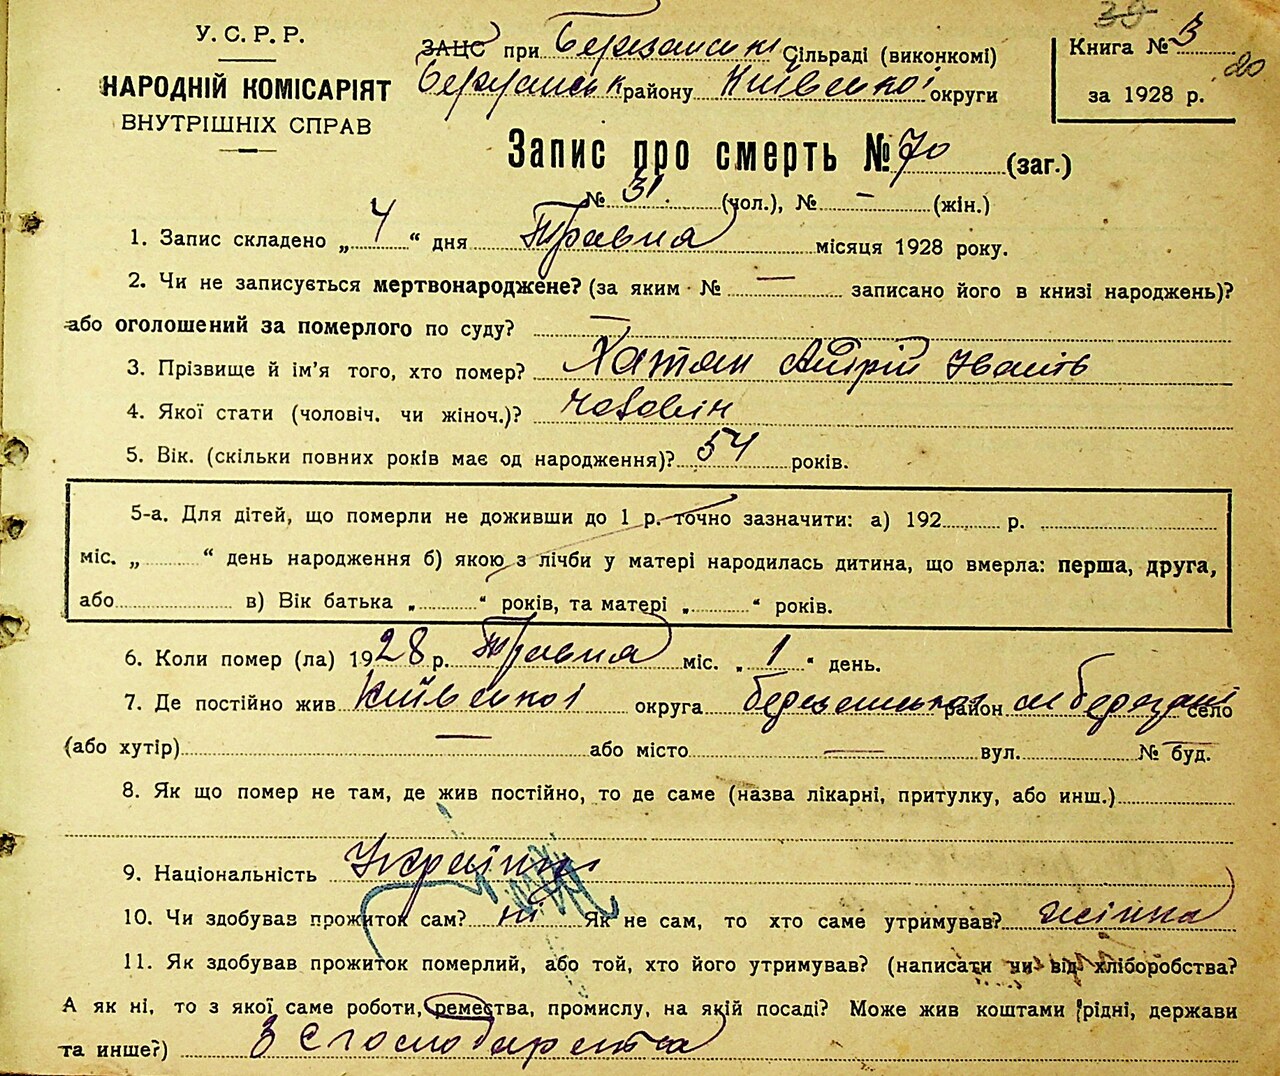 У. С. Р. Р.
НАРОДНІЙ КОМІСАРІЯТ
ВНУТРІШНІХ СПРАВ
ЗАЦС при Березанські Сільраді (виконкомі)
Березанськ району Київської округи
Книга № 3
за 1928 р.
20
Запис про смерть № 70 (заг.)
№ 31 (чол.), № – (жін.)
1. Запис складено „ 4 “ дня Травня місяця 1928 року.
2. Чи не записується мертвонароджене? (за яким № — записано його в книзі народжень)?
або оголошений за померлого по суду? —
3. Прізвище й ім'я того, хто помер? Хатян Андрій Іванів
4. Якої стати (чоловіч. чи жіноч.)? чоловік
5. Вік. (скільки повних років має од народження)? 54 років.
5-а. Для дітей, що померли не доживши до 1 р. точно зазначити: а) 192 р.
міс. „ “ день народження б) якою з лічби у матері народилась дитина, що вмерла: перша, друга,
або в) Вік батька „ “ років, та матері „ “ років.
6. Коли помер (ла) 1928 р. Травня міс. „ 1 “ день.
7. Де постійно жив Київської округа Березанської район м Березані село
(або хутір) — або місто — вул. № буд.
8. Як що помер не там, де жив постійно, то де саме (назва лікарні, притулку, або инш.)
9. Національність Українец
10. Чи здобував прожиток сам? ні Як не сам, то хто саме утримував? жінка
11. Як здобував прожиток померлий, або той, хто його утримував? (написати чи від хліборобства?
А як ні, то з якої саме роботи, ремества, промислу, на якій посаді? Може жив коштами рідні, держави
та инше?) З Сгосподарства